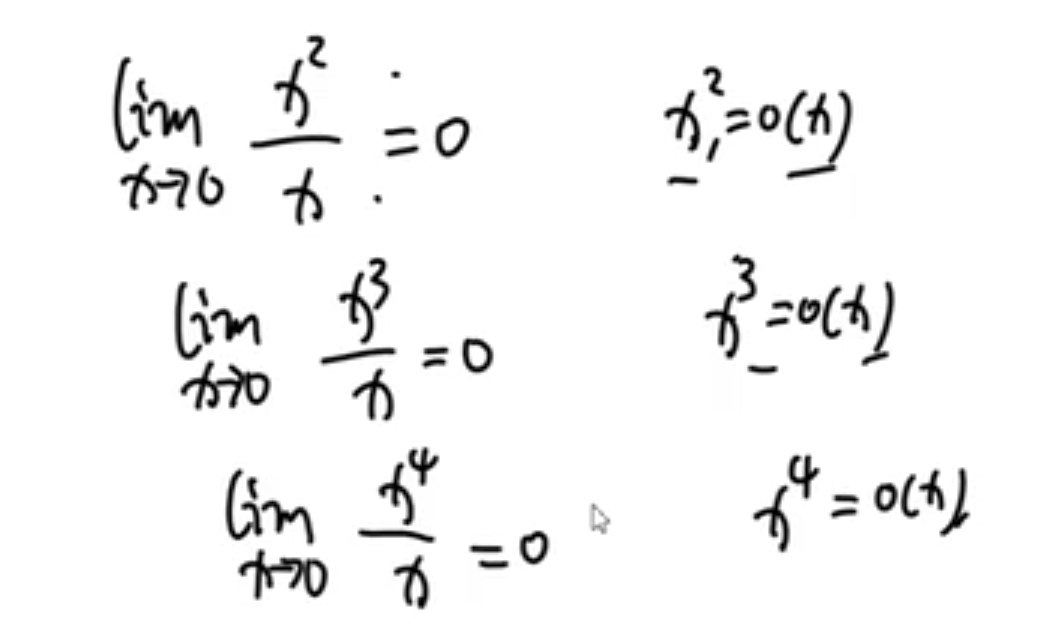 lim x→0 x²/x = 0 x² = o(x)
lim x→0 x³/x = 0 x³ = o(x)
lim x→0 x⁴/x = 0 x⁴ = o(x)